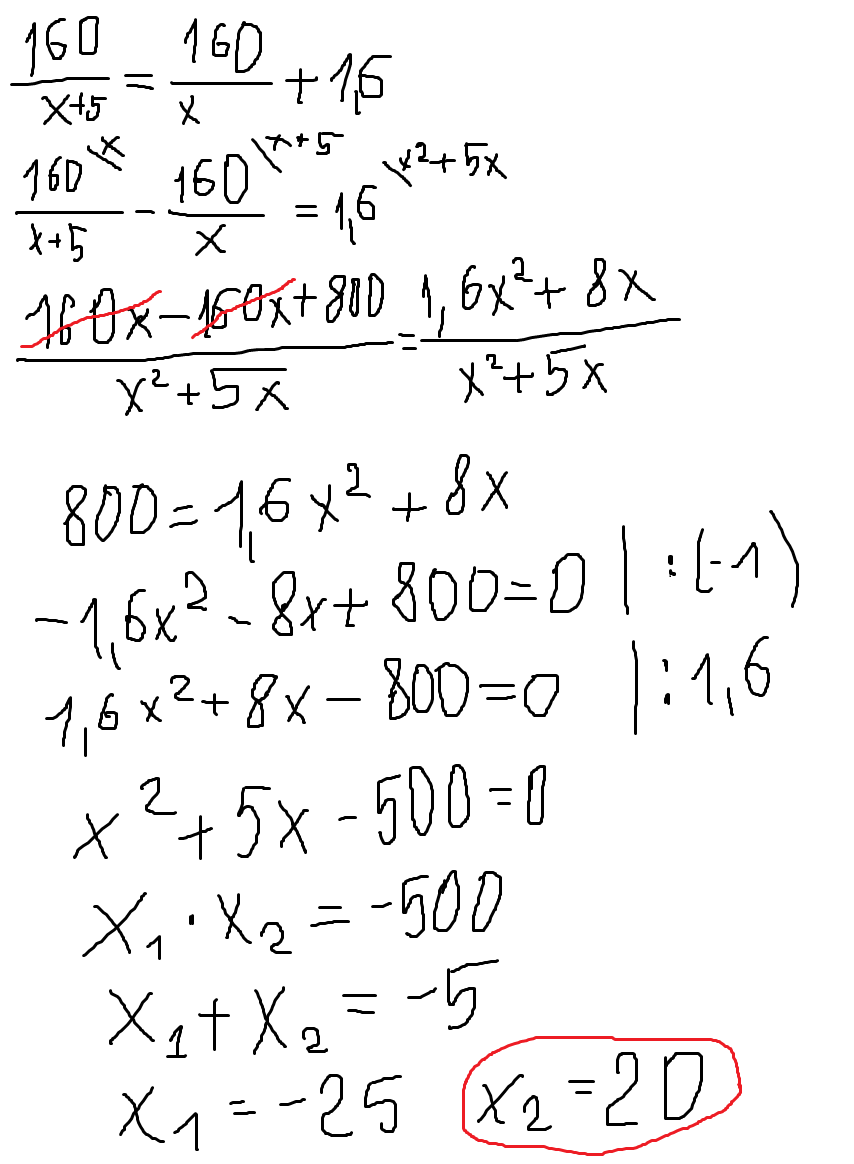 160/(x+5) = 160/x + 1,6
160\x/(x+5) - 160\x+5/x = 1,6\x²+5x
(160x-160x+800)/(x²+5x) = (1,6x²+8x)/(x²+5x)
800=1,6x²+8x
-1,6x²-8x+800=0 |:(-1)
1,6x²+8x-800=0 |:1,6
x²+5x-500=0
x₁·x₂=-500
x₁+x₂=-5
x₁=-25 x₂=20